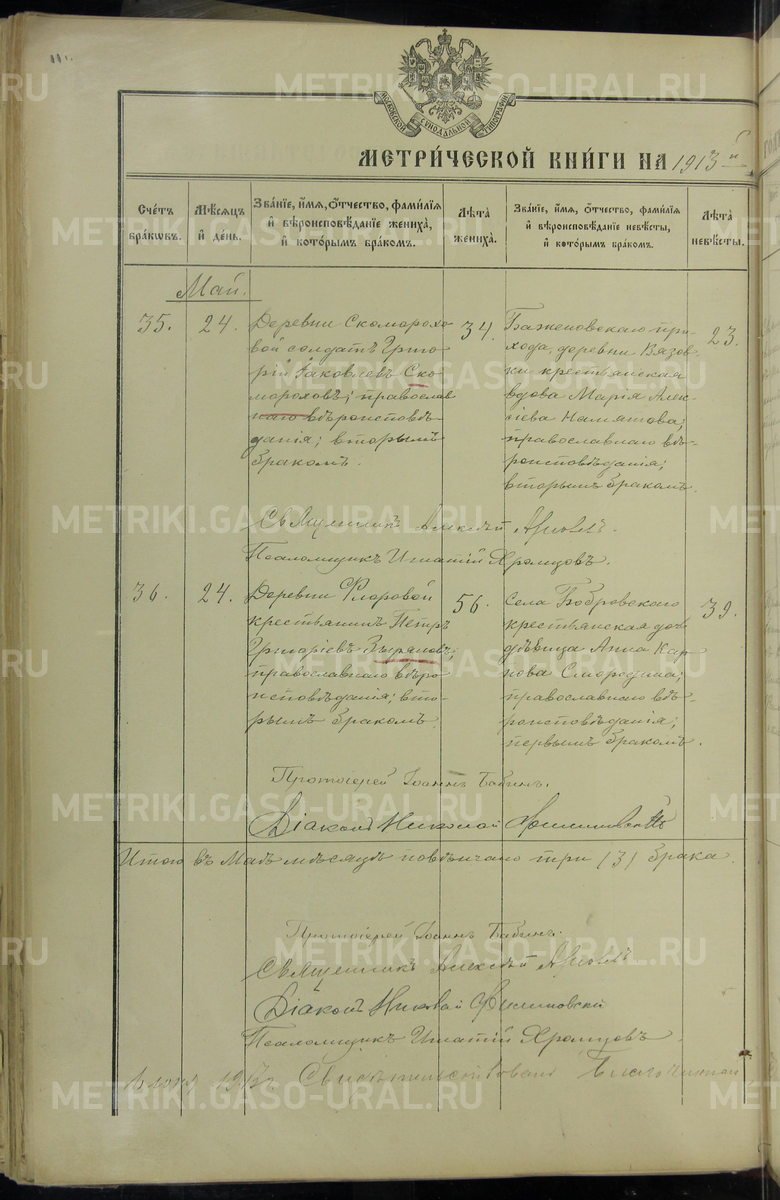 МОСКОВСКОЙ СИНОДАЛЬНОЙ ТИПОГРАФІИ
МЕТРИ́ЧЕСКОЙ КНИ́ГИ НА 1913 й
Сче́тъ бра́кωвъ.
Мѣ́сяцъ и҆ де́нь.
Зва́нїе, и҆́мя, ѻ҆́тчество, фами́лїя и҆ вѣроисповѣ́данїе жениха̀, и҆ кото́рымъ бра́комъ.
Лѣта̀ жениха̀.
Зва́нїе, и҆́мя, ѻ҆́тчество, фами́лїя и҆ вѣроисповѣ́данїе невѣ́сты, и҆ кото́рымъ бра́комъ.
Лѣта̀ невѣ́сты.
Май.
35.
24.
Деревни Скоморохо-
вой солдатъ Григо-
рій Іаковлевъ Ско-
мороховъ; православ
наго вѣроисповѣ-
данія; вторымъ
бракомъ.
34.
Баженовскаго при-
хода, деревни Вязов-
ки крестьянская
вдова Марія Алек-
сіева Намятова;
православнаго вѣ-
роисповѣданія;
вторымъ бракомъ.
23.
Священникъ Алексѣй
Псаломщикъ Игнатій Хромцовъ.
36.
24.
Деревни Флоровой
крестьянинъ Петръ
Григоріевъ Зыряновъ;
православнаго вѣро
исповѣданія; вто-
рымъ бракомъ.
56.
Села Бобровскаго
крестьянская дочь
дѣвица Анна Кар
пова Смородина;
православнаго вѣ-
роисповѣданія;
первымъ бракомъ.
39.
Протоіерей Іоаннъ Бабинъ.
Діаконъ Николай
Итого въ Маѣ мѣсяцѣ повѣнчано три (3) брака.
Протоіерей Іоаннъ Бабинъ.
Священникъ Алексѣй
Діаконъ Николай
Псаломщикъ Игнатій Хромцовъ.
Свидѣтельствовалъ Благочинный
METRIKI.GASO-URAL.RU